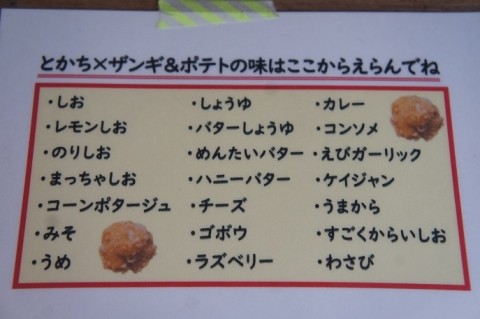 とかち×ザンギ&ポテトの味はここからえらんでね
・しお
・レモンしお
・のりしお
・まっちゃしお
・コーンポタージュ
・みそ
・うめ
・しょうゆ
・バターしょうゆ
・めんたいバター
・ハニーバター
・チーズ
・ゴボウ
・ラズベリー
・カレー
・コンソメ
・えびガーリック
・ケイジャン
・うまから
・すごくからいしお
・わさび